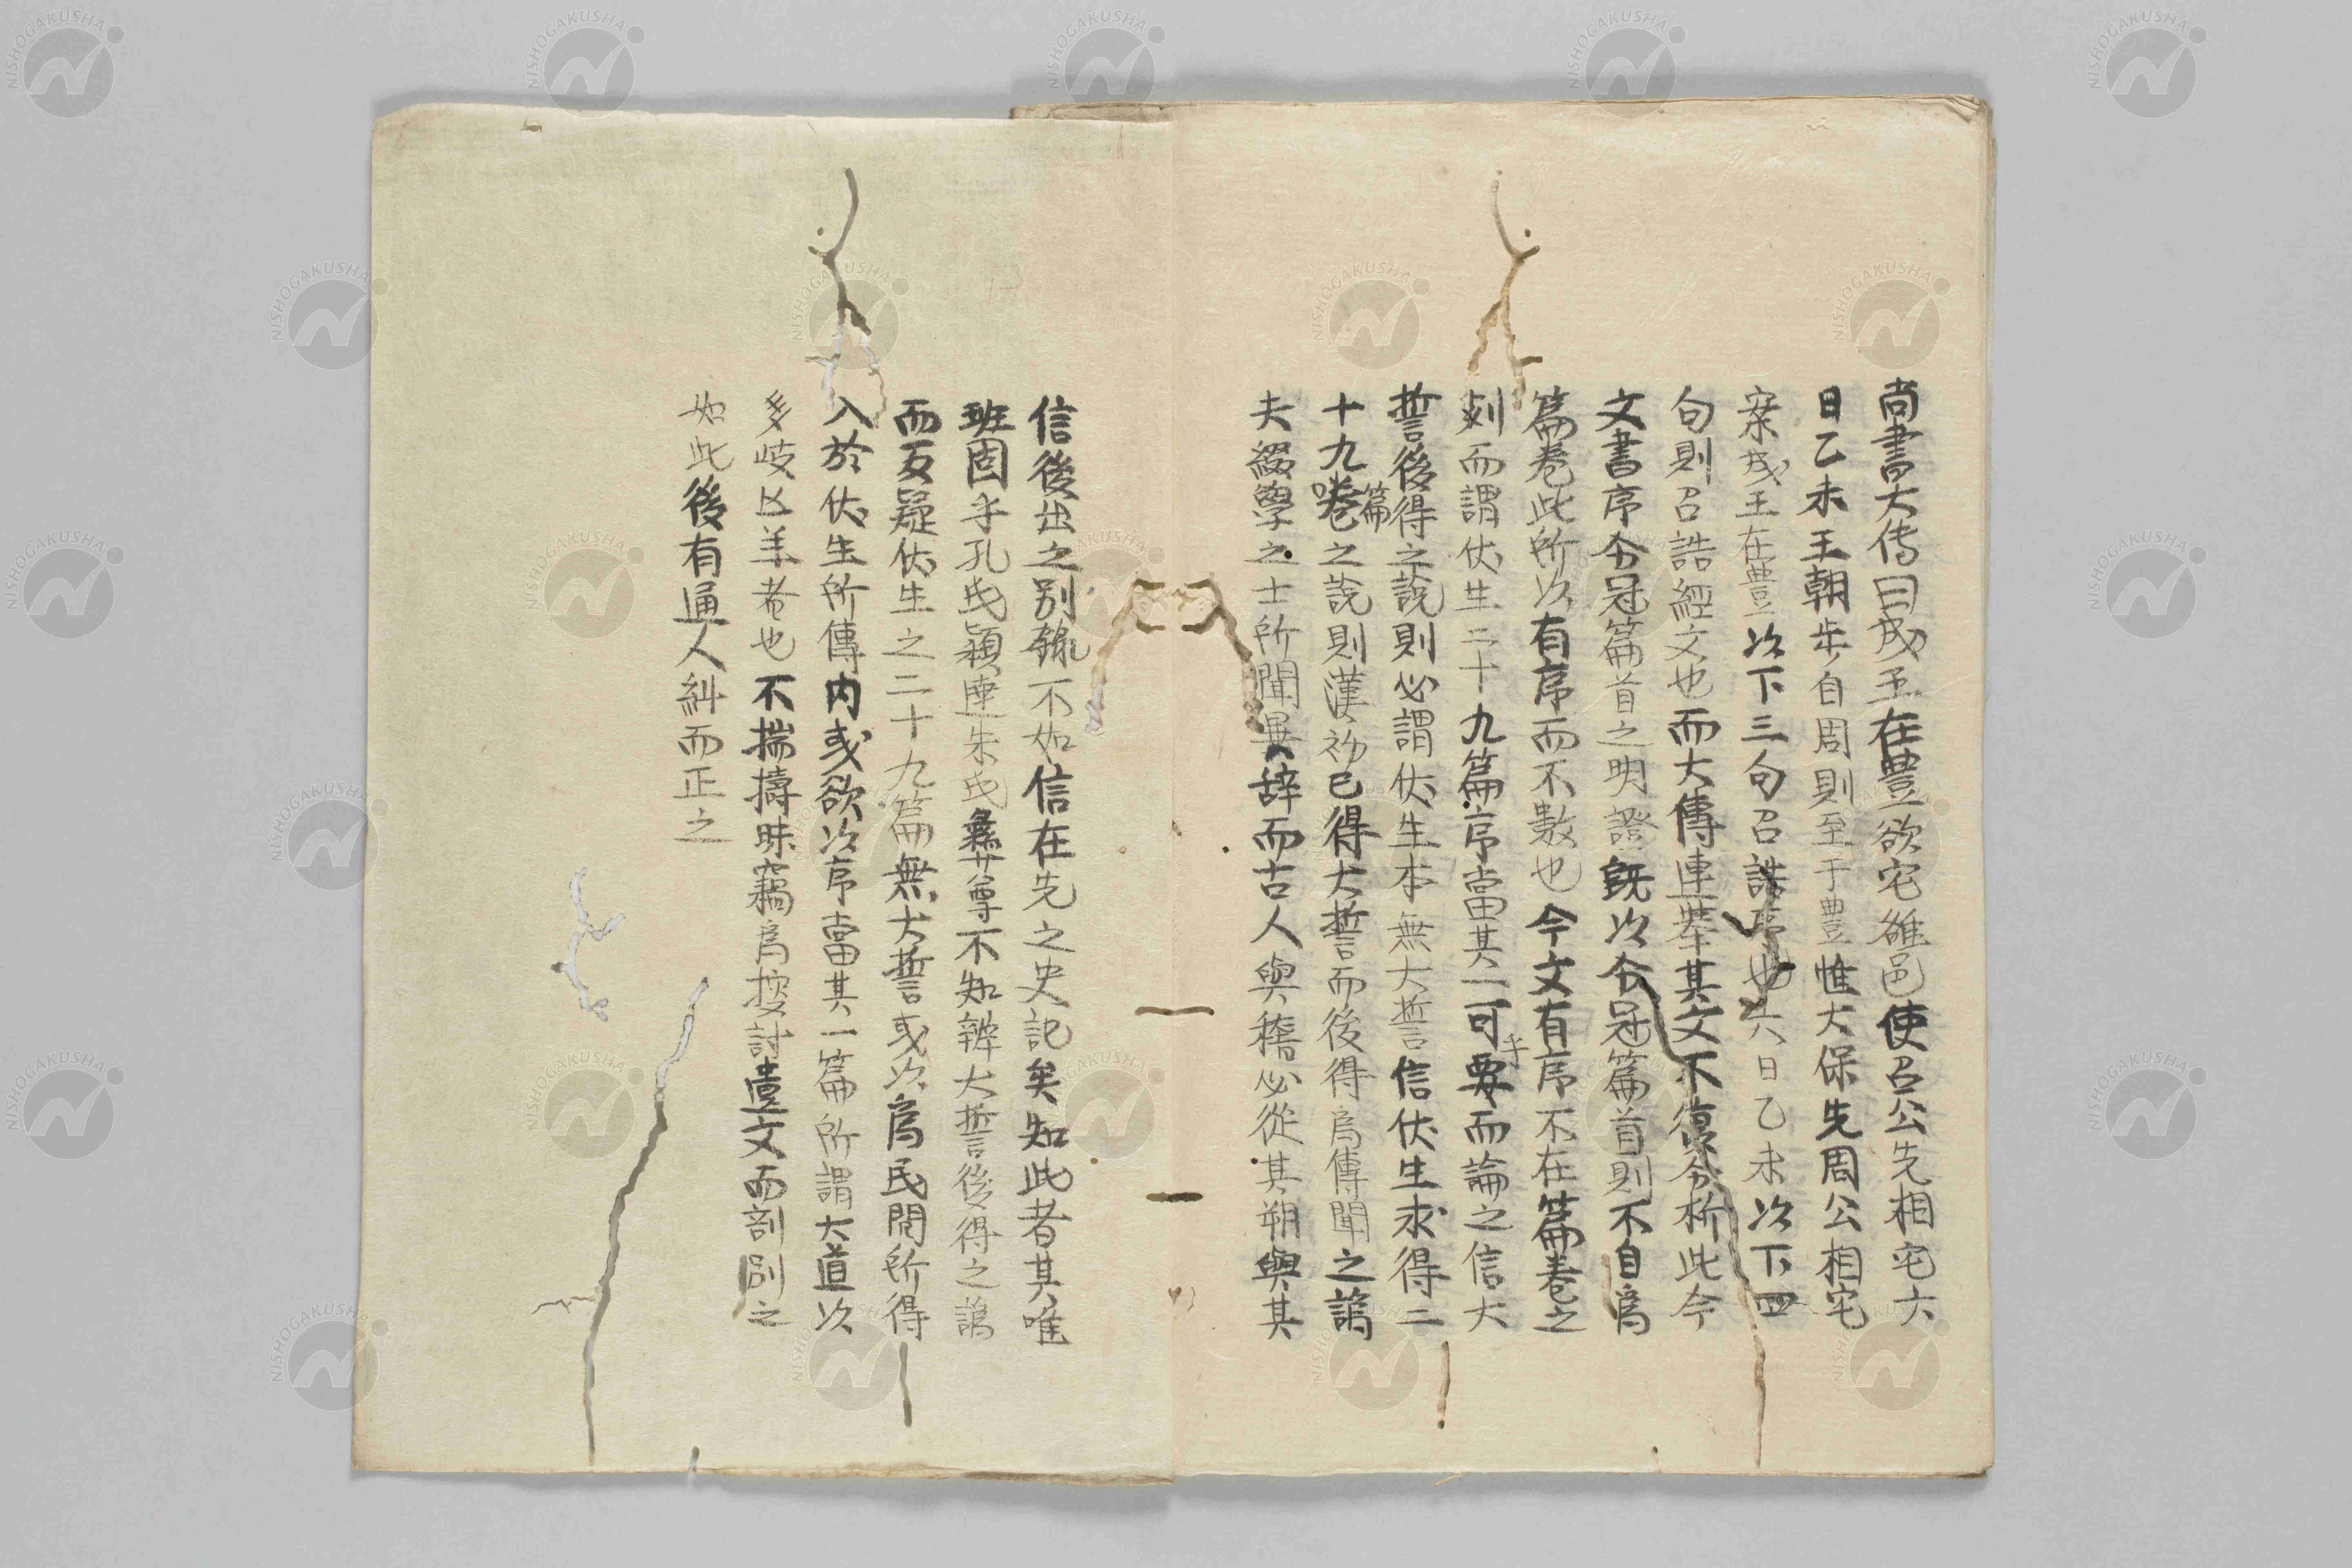 尚書大传曰成王在豊欲宅雒邑使召公先相宅六
日乙未王朝步自周則至于豊惟大保先周公相宅
案成王在豊次下三句召誥序也六日乙未次下四
句則召誥經文也而大傳連挙其文不復分析此今
文書序令冠篇首之明證既次令冠篇首則不自爲
篇卷此所次有序而不數也今文有序不在篇卷之
列而謂伏生二十九篇序當其一可乎要而論之信大
誓後得之說則必謂伏生本無大誓信伏生求得二
十九卷篇之說則漢初已得大誓而後得爲傳聞之譌
夫綴學之士所聞異辞而古人與稽必從其朔與其
信後出之别錄不如信在先之史記矣知此者其唯
班固乎孔氏穎達朱氏彝尊不知辨大誓後得之譌
而反疑伏生之二十九篇無大誓或次爲民間所得
入於伏生所傳内或欲次序當其一篇所謂大道次
多歧亾羊者也不揣擣昧竊爲按討壹文而剖别之
如此後有通人糾而正之
NISHOGAKUSHA